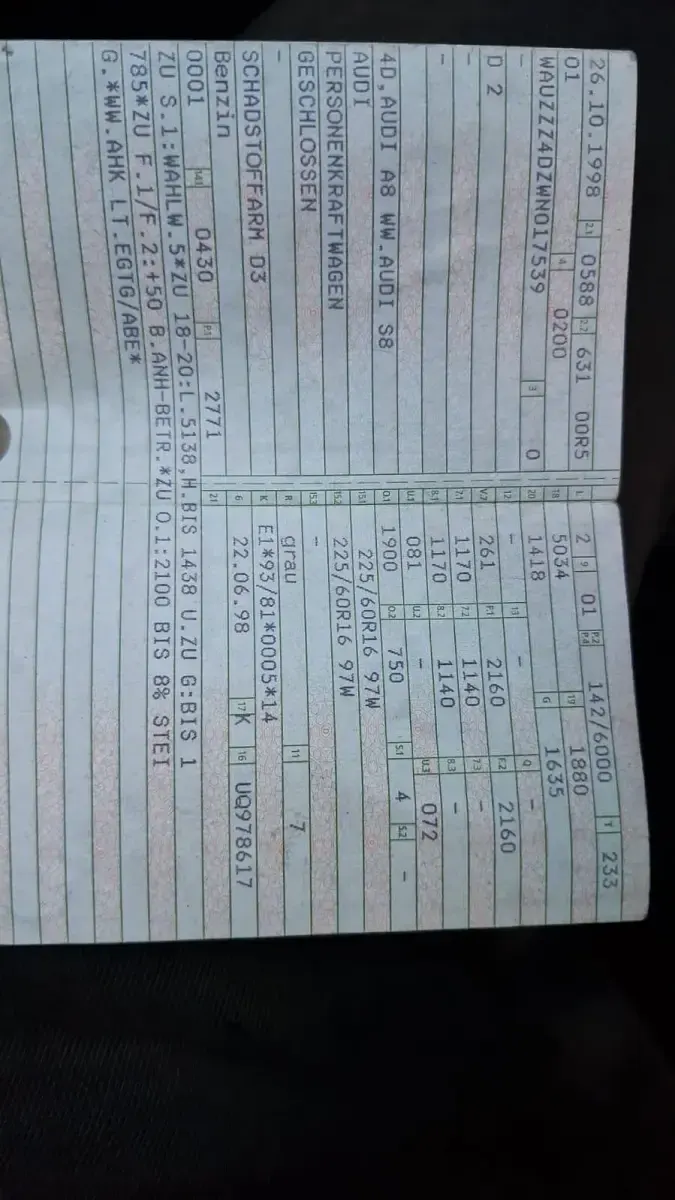 26.10.1998 2.1 0588 2.2 631 00R5
01 4 0200
WAUZZZ4DZWN017539 3 0
-
D 2
-
-
4D,AUDI A8 WW.AUDI S8
AUDI
PERSONENKRAFTWAGEN
GESCHLOSSEN
-
SCHADSTOFFARM D3
Benzin
0001 14.1 0430 P.1 2771
L 2 9 01 P.2 P.4 142/6000 T 233
18 5034 19 1880
20 1418 G 1635
12 - 13 - Q -
V.7 261 F.1 2160 F.2 2160
7.1 1170 7.2 1140 7.3 -
8.1 1170 8.2 1140 8.3 -
U.1 081 U.2 - U.3 072
O.1 1900 O.2 750 S.1 4 S.2 -
15.1 225/60R16 97W
15.2 225/60R16 97W
15.3 -
R grau 11 7
K E1*93/81*0005*14
6 22.06.98 17 K 16 UQ978617
21
ZU S.1:WAHLW.5*ZU 18-20:L.5138,H.BIS 1438 U.ZU G:BIS 1
785*ZU F.1/F.2:+50 B.ANH-BETR.*ZU O.1:2100 BIS 8% STEI
G.*WW.AHK LT.EGTG/ABE*